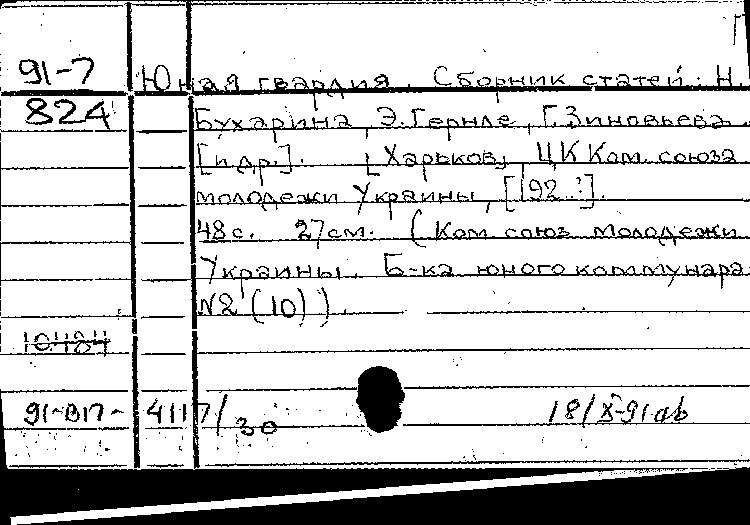 91-7 Юная гвардия. Сборник статей: Н.
824 Бухарина, Э. Гернле, Г. Зиновьева.
[и др.]. [Харьков], ЦК Ком. союза
молодежи Украины, [192.?].
48 с. 27 см. (Ком. союз молодежи
Украины. Б-ка юного коммунара
№2 (10)).
10484
91-В17- 4117/30 18/X-91 ab